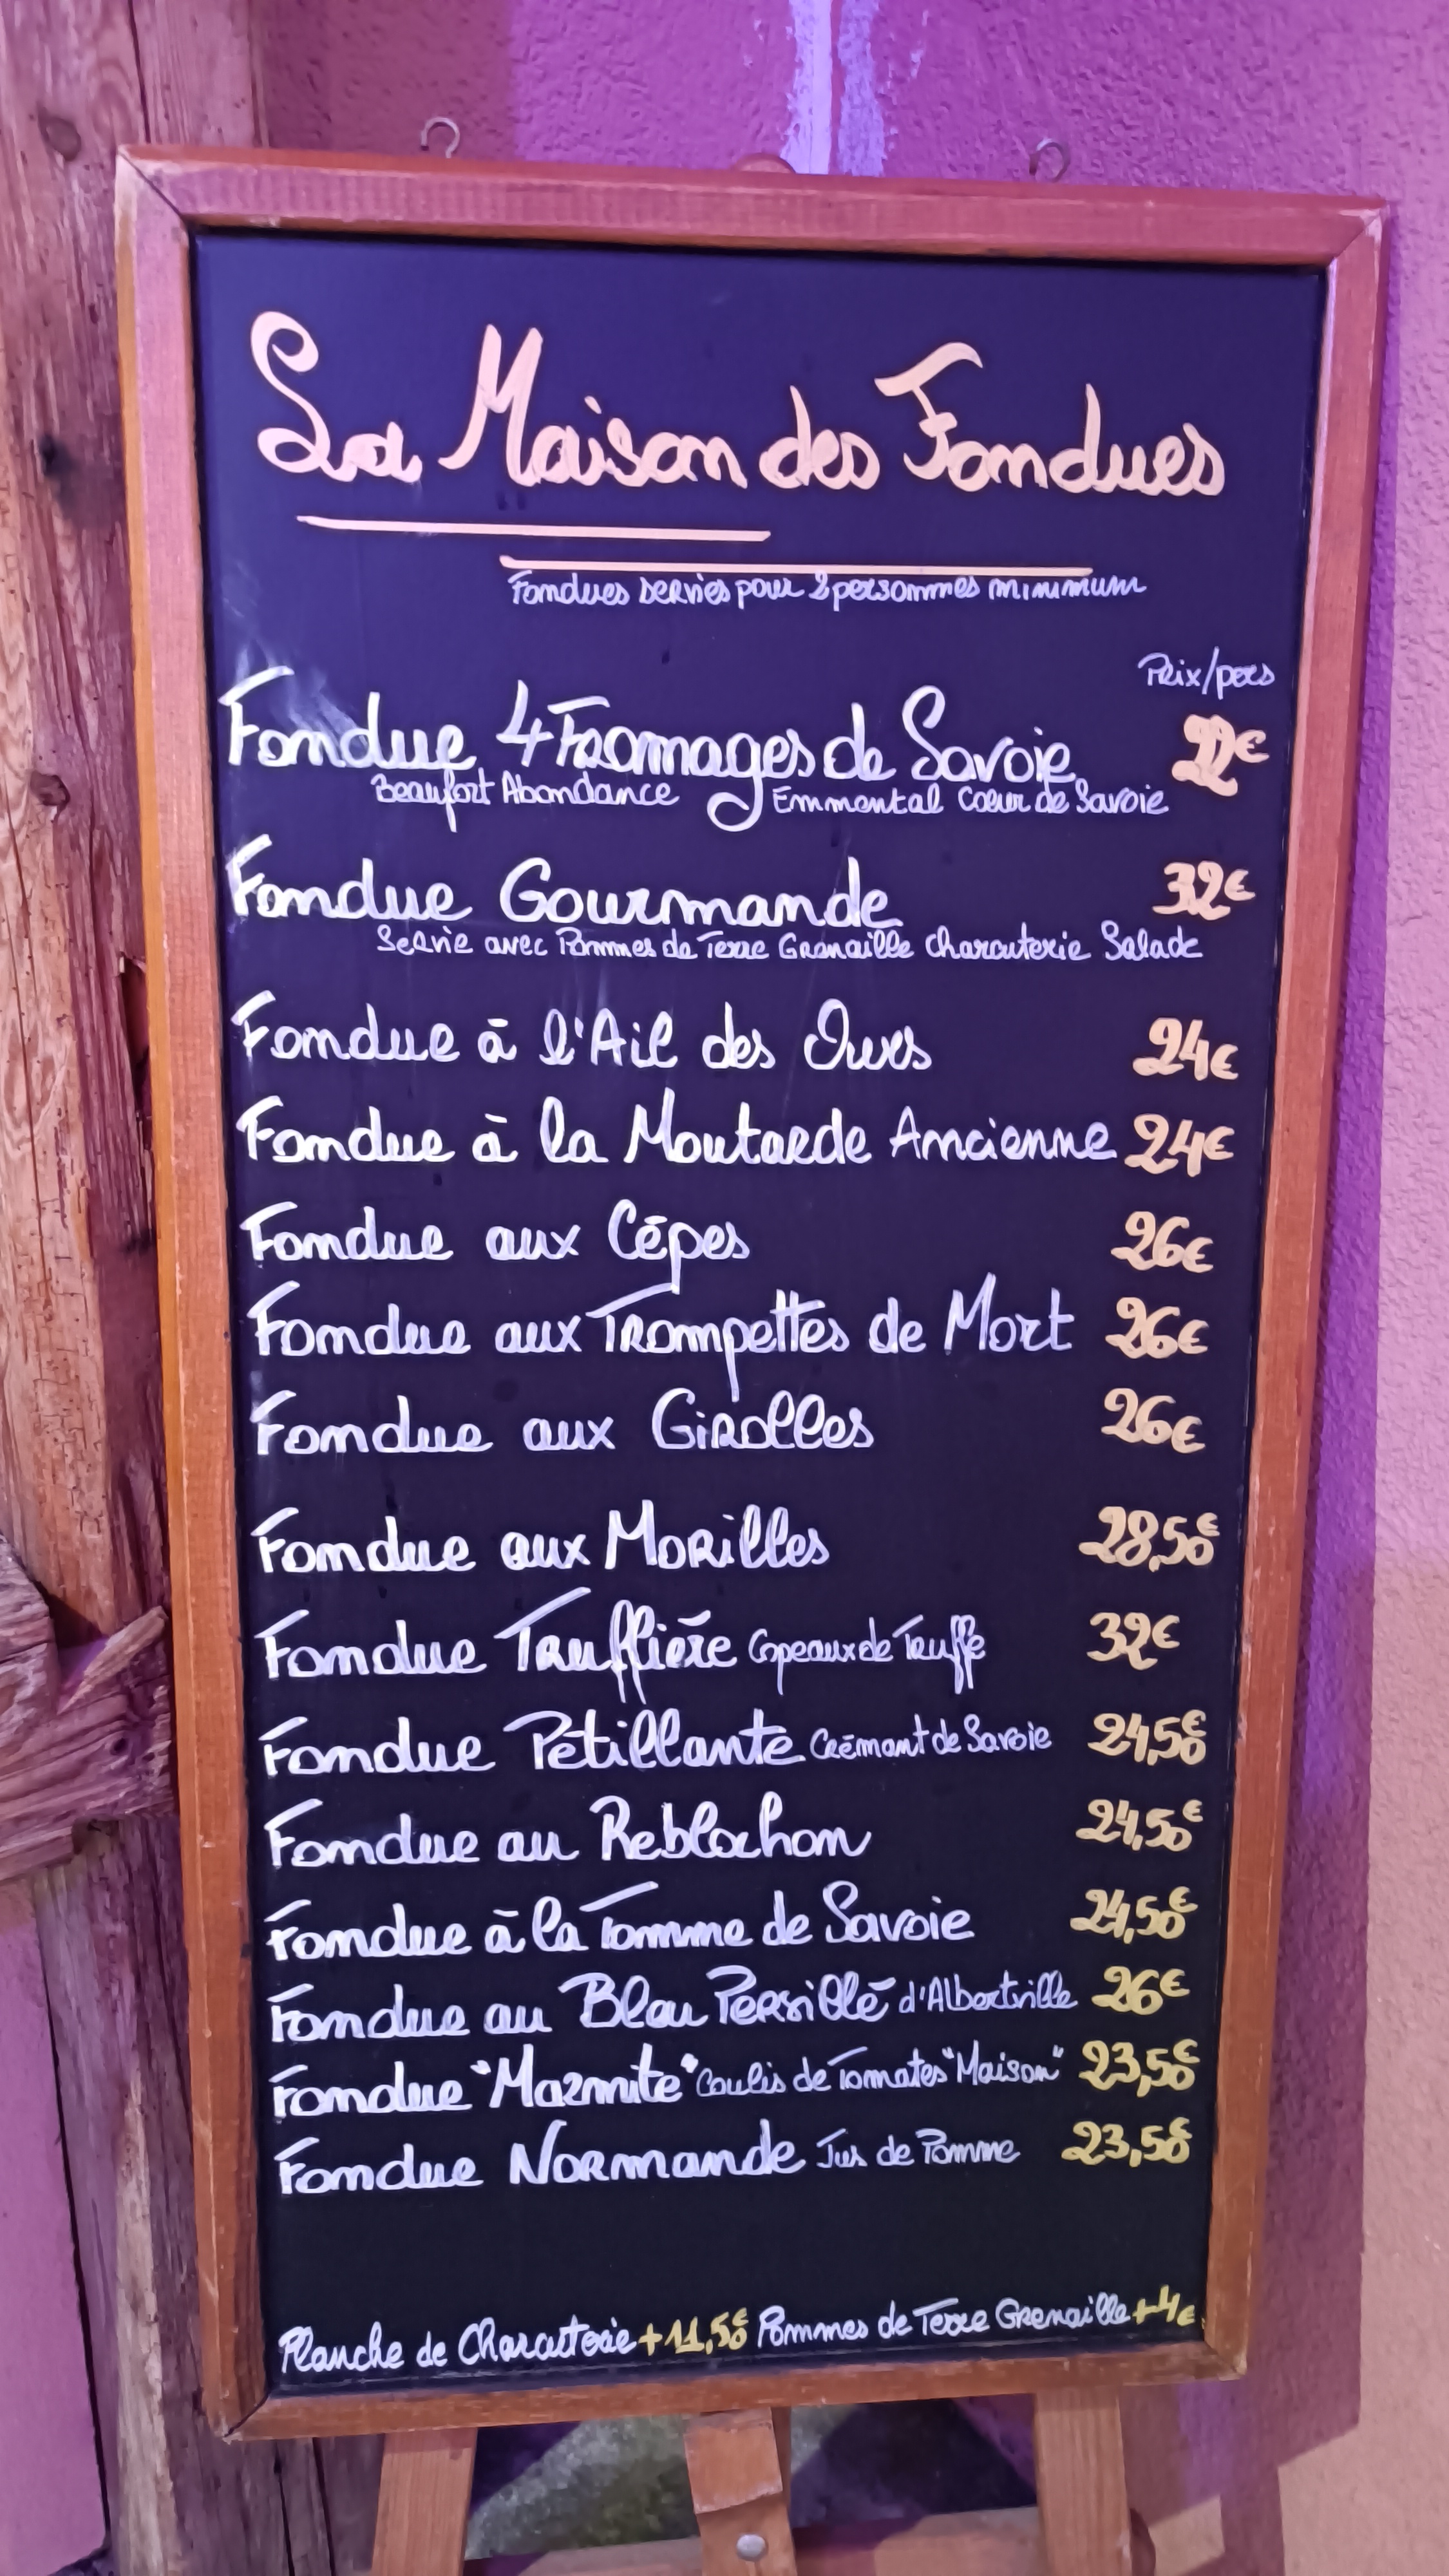 La Maison des Fondues
Fondues servies pour 2 personnes minimum
Prix/pers
Fondue 4 Fromages de Savoie 22€
Beaufort Abondance Emmental Coeur de Savoie
Fondue Gourmande 32€
Servie avec Pommes de Terre Grenaille Charcuterie Salade
Fondue à l'Ail des Ours 24€
Fondue à la Moutarde Ancienne 24€
Fondue aux Cèpes 26€
Fondue aux Trompettes de Mort 26€
Fondue aux Girolles 26€
Fondue aux Morilles 28,50€
Fondue Truffière Copeaux de Truffe 32€
Fondue Pétillante Crémant de Savoie 24,50€
Fondue au Reblochon 24,50€
Fondue à la Tomme de Savoie 24,50€
Fondue au Bleu Persillé d'Albertville 26€
Fondue "Marmite" Coulis de Tomates "Maison" 23,50€
Fondue Normande Jus de Pomme 23,50€
Planche de Charcuterie +11,50€ Pommes de Terre Grenaille +4€